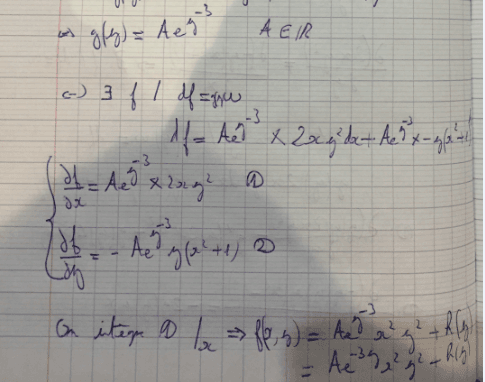 ⇒ g(y) = A e^{y^{-3}}   A ∈ ℝ
⇔ ∃ f / df = gω
df = A e^{y^{-3}} × 2xy² dx + A e^{y^{-3}} × -y(x²+1)
∂f/∂x = A e^{y^{-3}} × 2xy² ①
∂f/∂y = - A e^{y^{-3}} y(x²+1) ②
On integr ① /x ⇒ f(x,y) = A e^{y^{-3}} x² y² + h(y)
= A e^{-3y} x² y² + h(y)